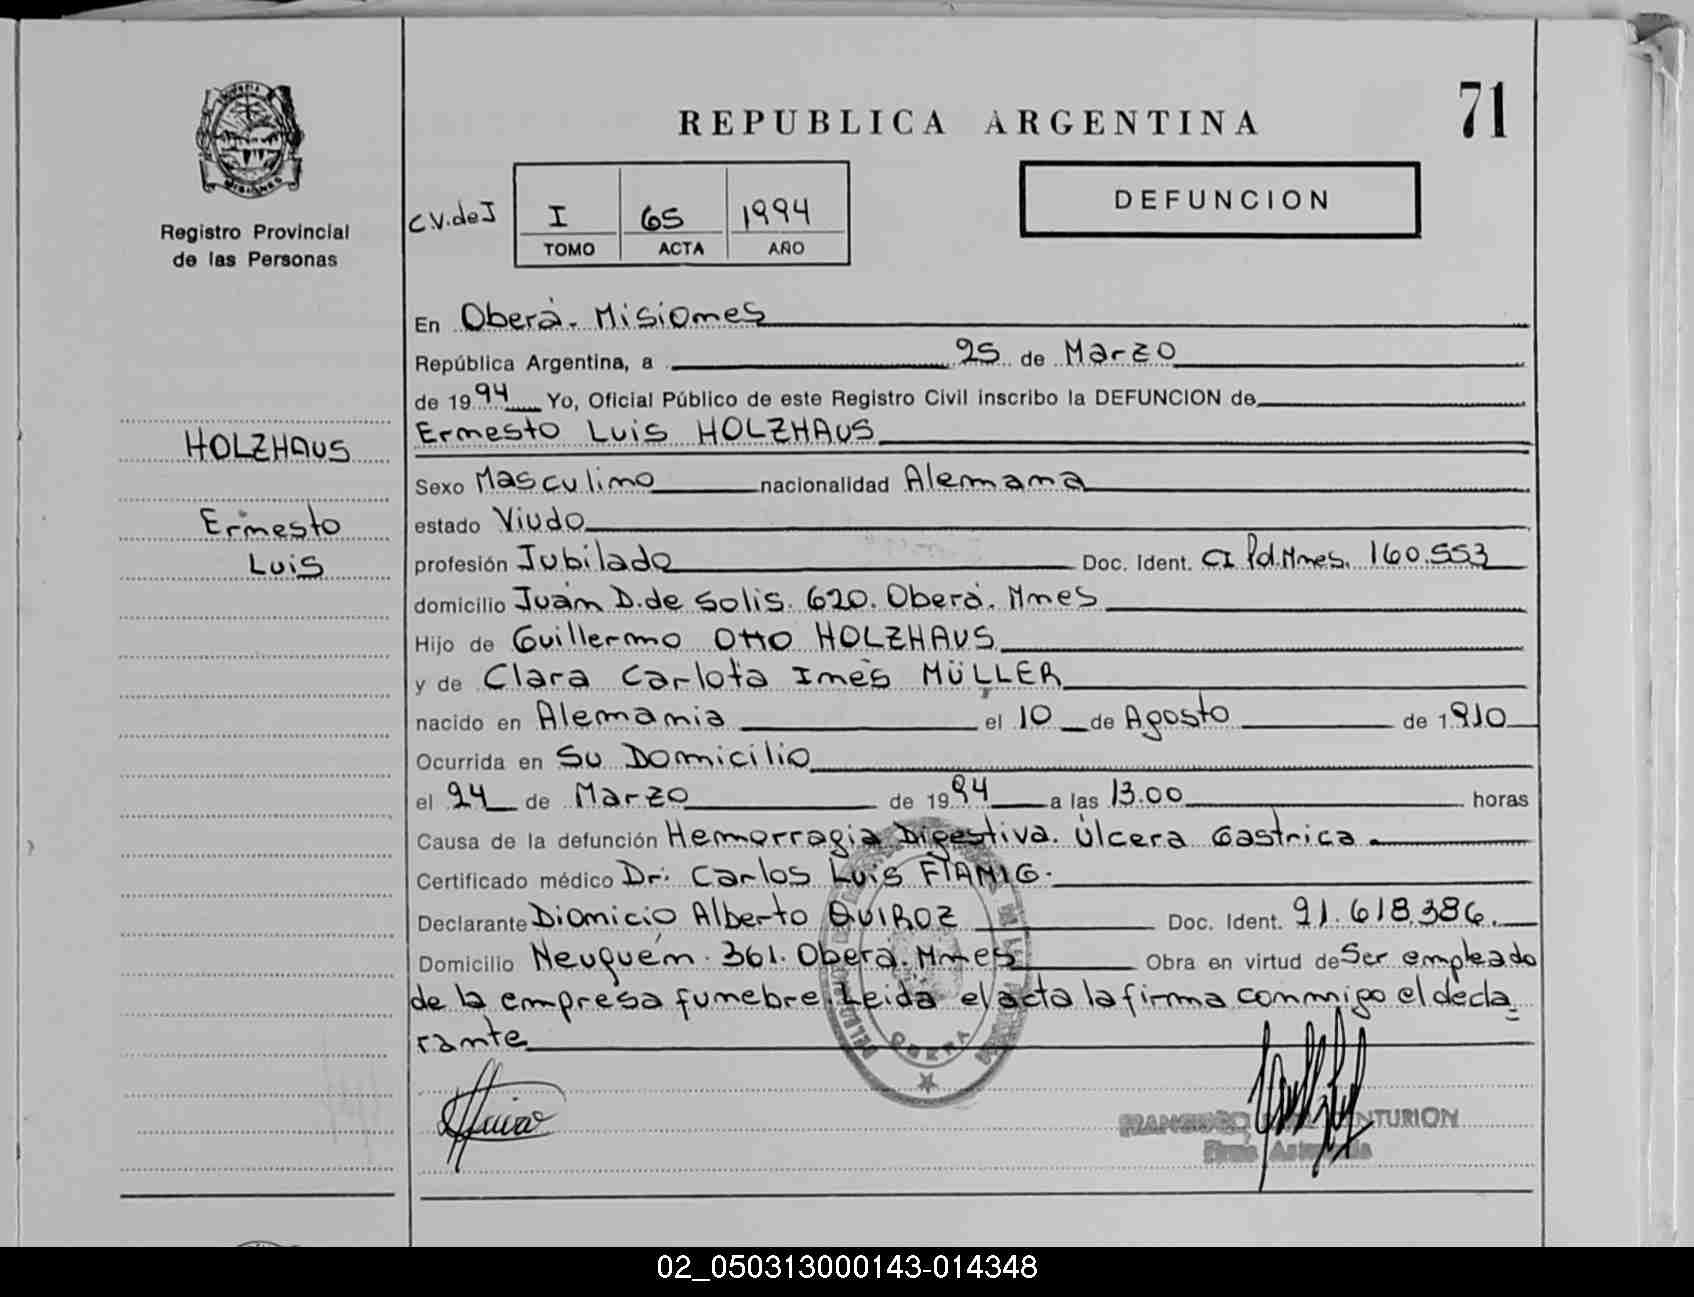 71
REPUBLICA ARGENTINA
MISIONES
Registro Provincial
de las Personas
C.V. de J
I 65 1994
TOMO ACTA AÑO
DEFUNCION
En Oberá. Misiones
República Argentina, a 25 de Marzo
de 1994 Yo, Oficial Público de este Registro Civil inscribo la DEFUNCION de
HOLZHAUS
Ernesto
Luis
Ernesto Luis HOLZHAUS
Sexo Masculino nacionalidad Alemana
estado Viudo
profesión Jubilado Doc. Ident. CI Pol. Mnes. 160.553
domicilio Juan D. de Solis. 620. Oberá. Mnes
Hijo de Guillermo Otto HOLZHAUS
y de Clara Carlota Inés MÜLLER
nacido en Alemania el 10 de Agosto de 1910
Ocurrida en Su Domicilio
el 24 de Marzo de 1994 a las 13.00 horas
Causa de la defunción Hemorragia Digestiva. Úlcera Gastrica
Certificado médico Dr. Carlos Luis
Declarante Dionicio Alberto QUIROZ Doc. Ident. 21.618.386.
Domicilio Neuquém. 361. Oberá. Mnes Obra en virtud de Ser empleado
de la empresa funebre. Leida el acta la firma conmigo el decla
rante
OBERA
FRANCISCO CENTURION
Firma Autorizada
02_050313000143-014348